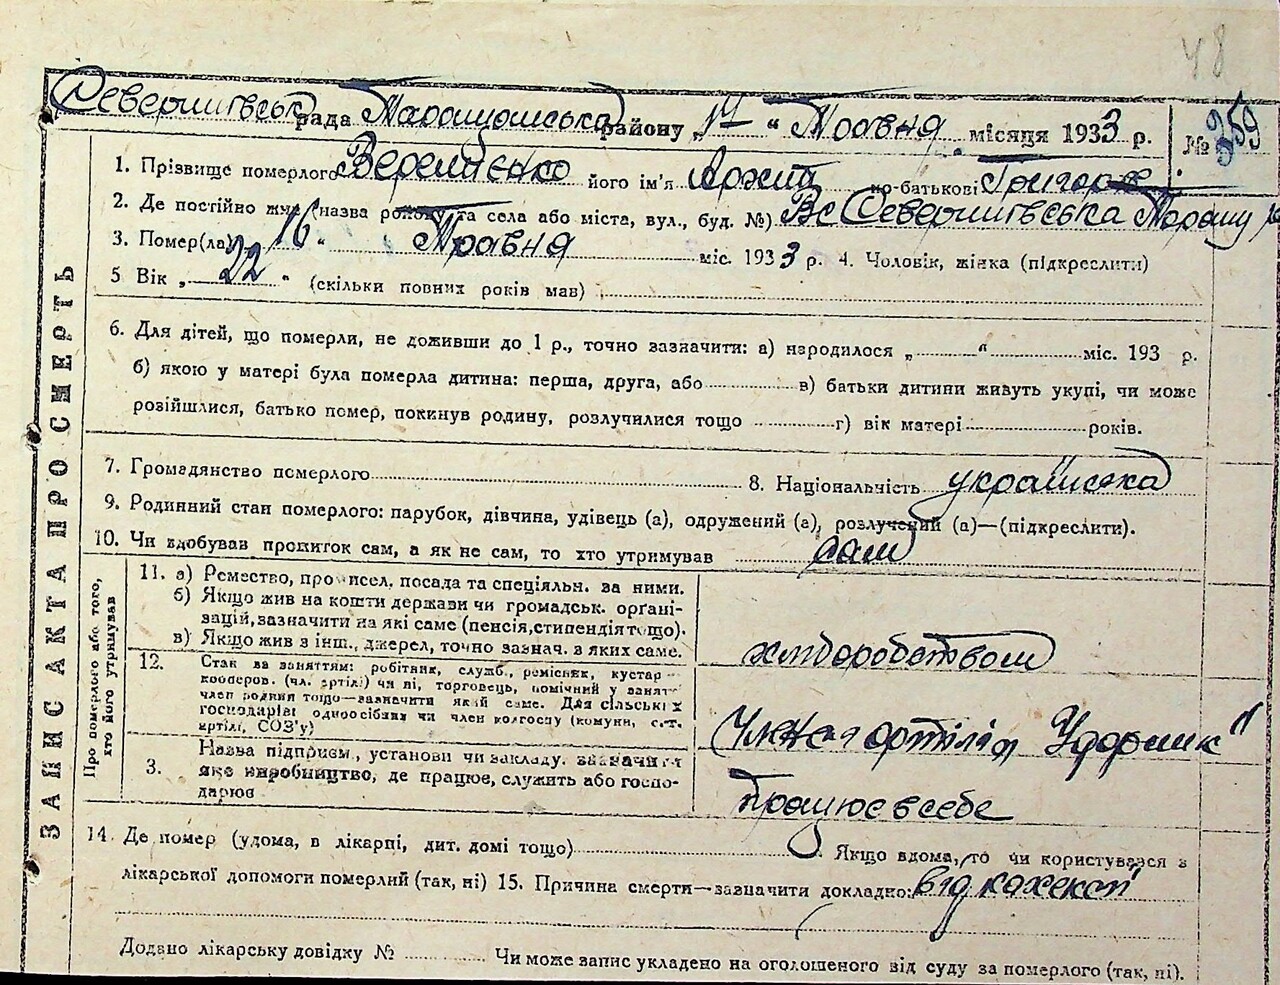 48
рада Таращанська району „17 “ Травня місяця 1933 р. № 359
1. Прізвище померлого його ім'я по-батькові
2. Де постійно жив (назва району та села або міста, вул., буд. №)
3. Помер(ла) 16 “ Травня міс. 1933 р. 4. Чоловік, жінка (підкреслити)
5 Вік „ 22 “ (скільки повних років мав)
6. Для дітей, що померли, не доживши до 1 р., точно зазначити: а) народилося „ “ міс. 193 р.
б) якою у матері була померла дитина: перша, друга, або в) батьки дитини живуть укупі, чи може
розійшлися, батько помер, покинув родину, розлучилися тощо г) вік матері років.
7. Громадянство померлого 8. Національність українска
9. Родинний стан померлого: парубок, дівчина, удівець (а), одружений (а), розлучений (а)—(підкреслити).
10. Чи здобував прожиток сам, а як не сам, то хто утримував сам
ЗАПИС АКТА ПРО СМЕРТЬ
Про померлого або того,
хто його утримував
11. а) Ремество, промисел, посада та спеціяльн. за ними.
б) Якщо жив на кошти держави чи громадськ. орґані-
зацій, зазначити на які саме (пенсія, стипендія тощо).
в) Якщо жив з інш., джерел, точно зазнач. з яких саме.
хліборобством
12. Стан за заняттям: робітник, служб., ремісник, кустар
кооперов. (чл. артілі) чи ні, торговець, помічний у занят
член родини тощо—зазначити який саме. Для сільських
господарів: одноосібник чи член колгоспу (комуни, с.-г.
артілі, СОЗ'у)
артілі „ Ударник "
3. Назва підприєм., установи чи закладу. зазначити
яке виробництво, де працює, служить або госпо-
дарює
працює в себе
14. Де помер (удома, в лікарні, дит. домі тощо) . Якщо вдома, то чи користувався з
лікарської допомоги померлий (так, ні) 15. Причина смерти—зазначити докладно: від кахексії
Додано лікарську довідку № Чи може запис укладено на оголошеного від суду за померлого (так, ні).